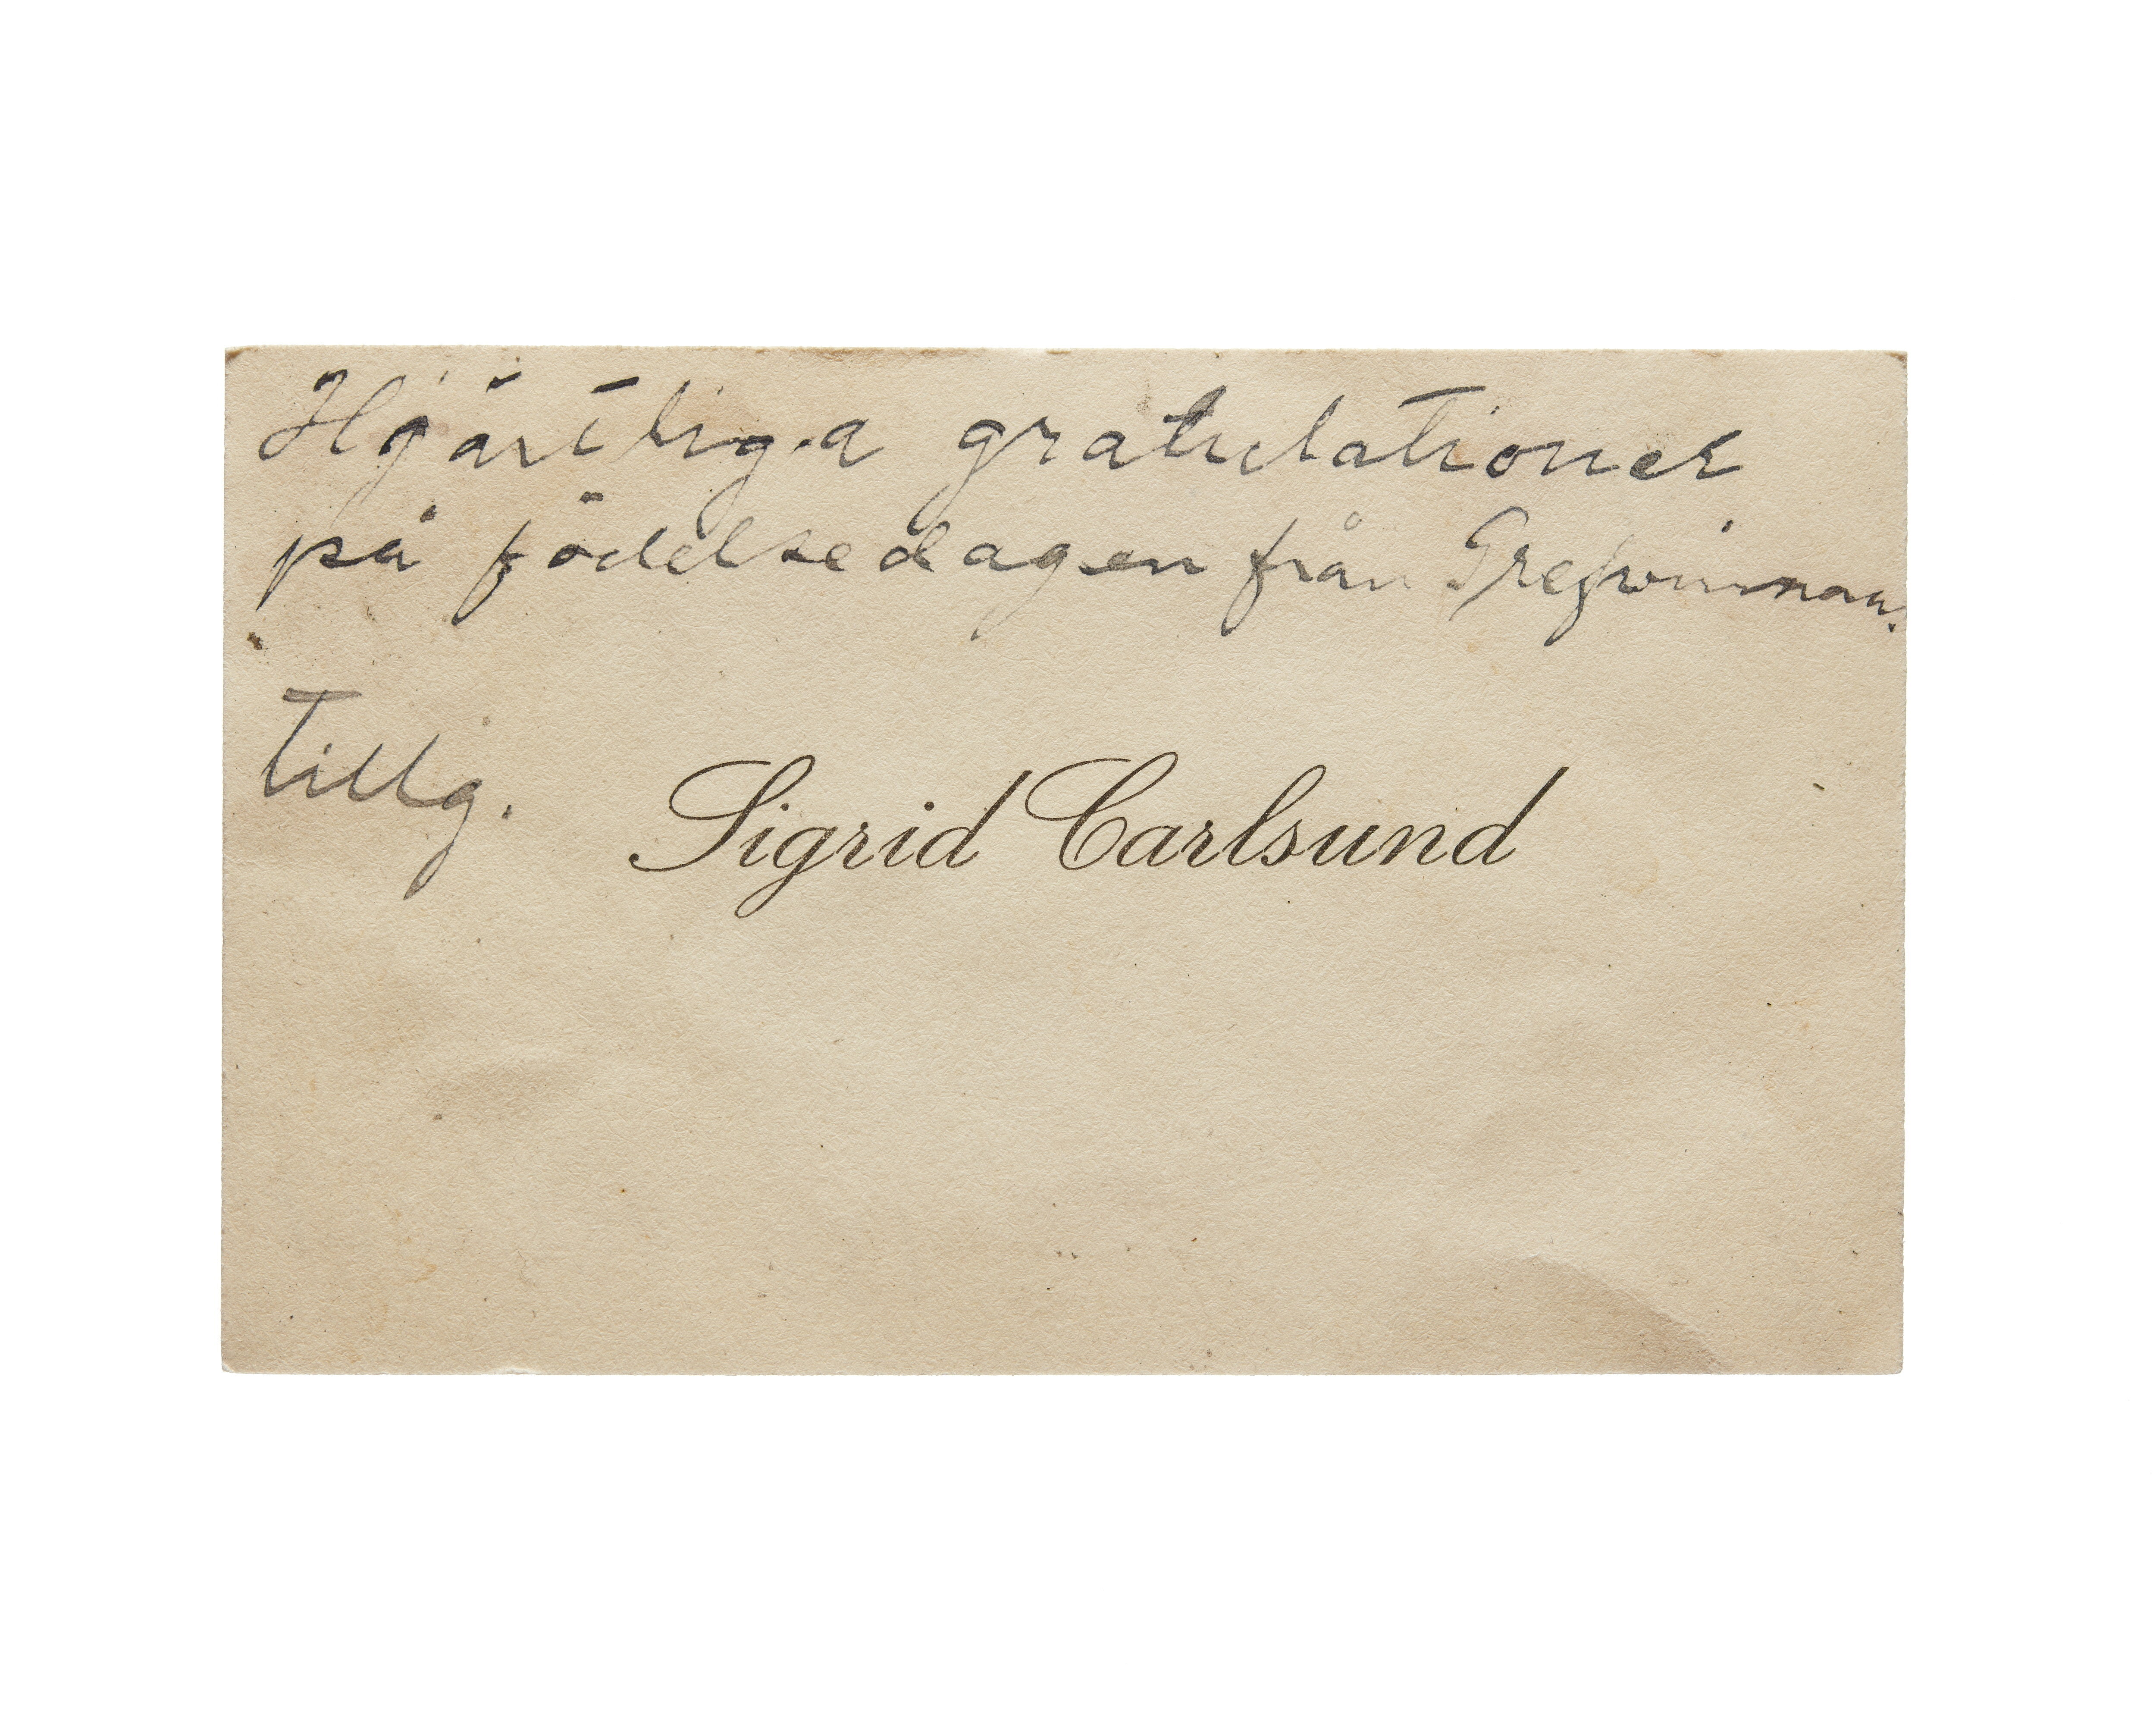 Hjärtliga gratulationer
på födelsedagen från Grefvinnan.
Tillg. Sigrid Carlsund